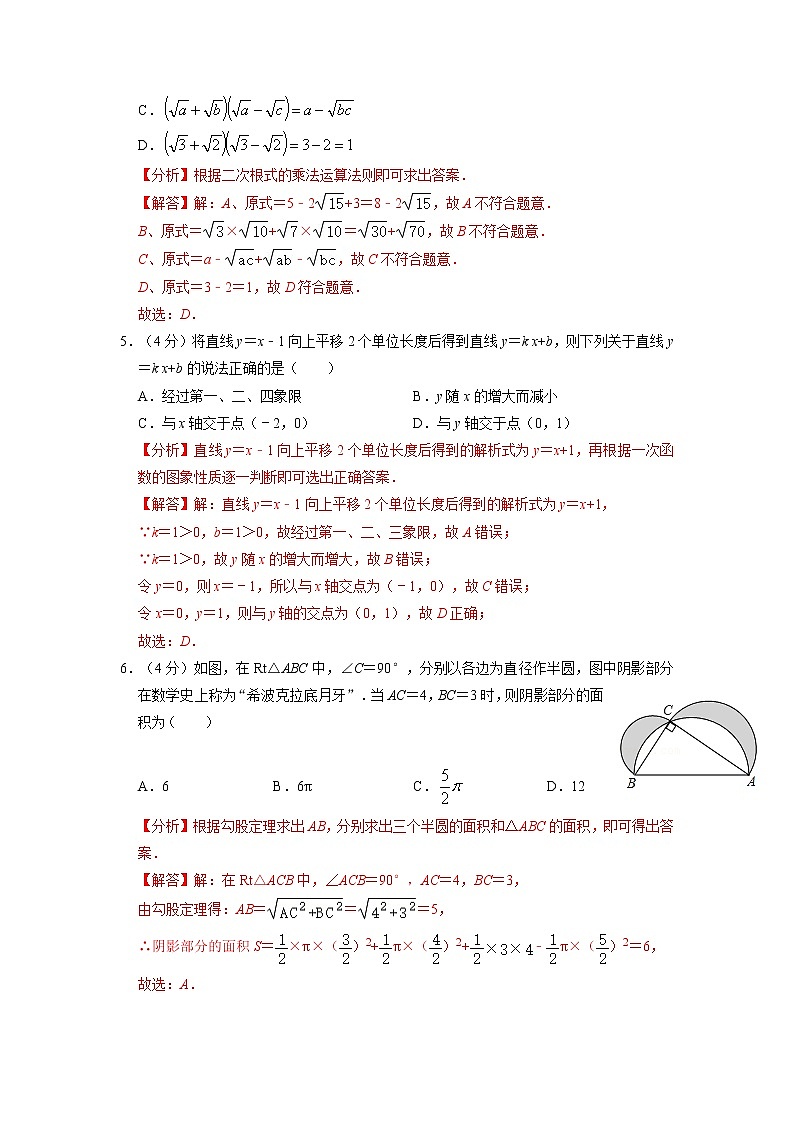 C．(√a+√b)(√a﹣√c)=a﹣√bc
D．(√3+√2)(√3﹣√2)=3﹣2=1
【分析】根据二次根式的乘法运算法则即可求出答案．
【解答】解：A、原式＝5﹣2√15+3＝8﹣2√15，故A不符合题意．
B、原式＝√3×√10+√7×√10＝√30+√70，故B不符合题意．
C、原式＝a﹣√ac+√ab﹣√bc，故C不符合题意．
D、原式＝3﹣2＝1，故D符合题意．
故选：D．
5．（4分）将直线y＝x﹣1向上平移2个单位长度后得到直线y＝k x+b，则下列关于直线y
＝k x+b的说法正确的是（　　）
A．经过第一、二、四象限 B．y随x的增大而减小
C．与x轴交于点（﹣2，0） D．与y轴交于点（0，1）
【分析】直线y＝x﹣1向上平移2个单位长度后得到的解析式为y＝x+1，再根据一次函
数的图象性质逐一判断即可选出正确答案．
【解答】解：直线y＝x﹣1向上平移2个单位长度后得到的解析式为y＝x+1，
∵k＝1＞0，b＝1＞0，故经过第一、二、三象限，故A错误；
∵k＝1＞0，故y随x的增大而增大，故B错误；
令y＝0，则x＝﹣1，所以与x轴交点为（﹣1，0），故C错误；
令x＝0，y＝1，则与y轴的交点为（0，1），故D正确；
故选：D．
6．（4分）如图，在Rt△ABC中，∠C＝90°，分别以各边为直径作半圆，图中阴影部分
在数学史上称为“希波克拉底月牙”．当AC＝4，BC＝3时，则阴影部分的面
积为（　　）
C
B A
A．6 B．6π C．5/2 π D．12
【分析】根据勾股定理求出AB，分别求出三个半圆的面积和△ABC的面积，即可得出答
案．
【解答】解：在Rt△ACB中，∠ACB＝90°，AC＝4，BC＝3，
由勾股定理得：AB＝√AC²+BC²＝√4²+3²＝5，
∴阴影部分的面积S＝1/2×π×（3/2）²+1/2π×（4/2）²+1/2×3×4﹣1/2π×（5/2）²＝6，
故选：A．